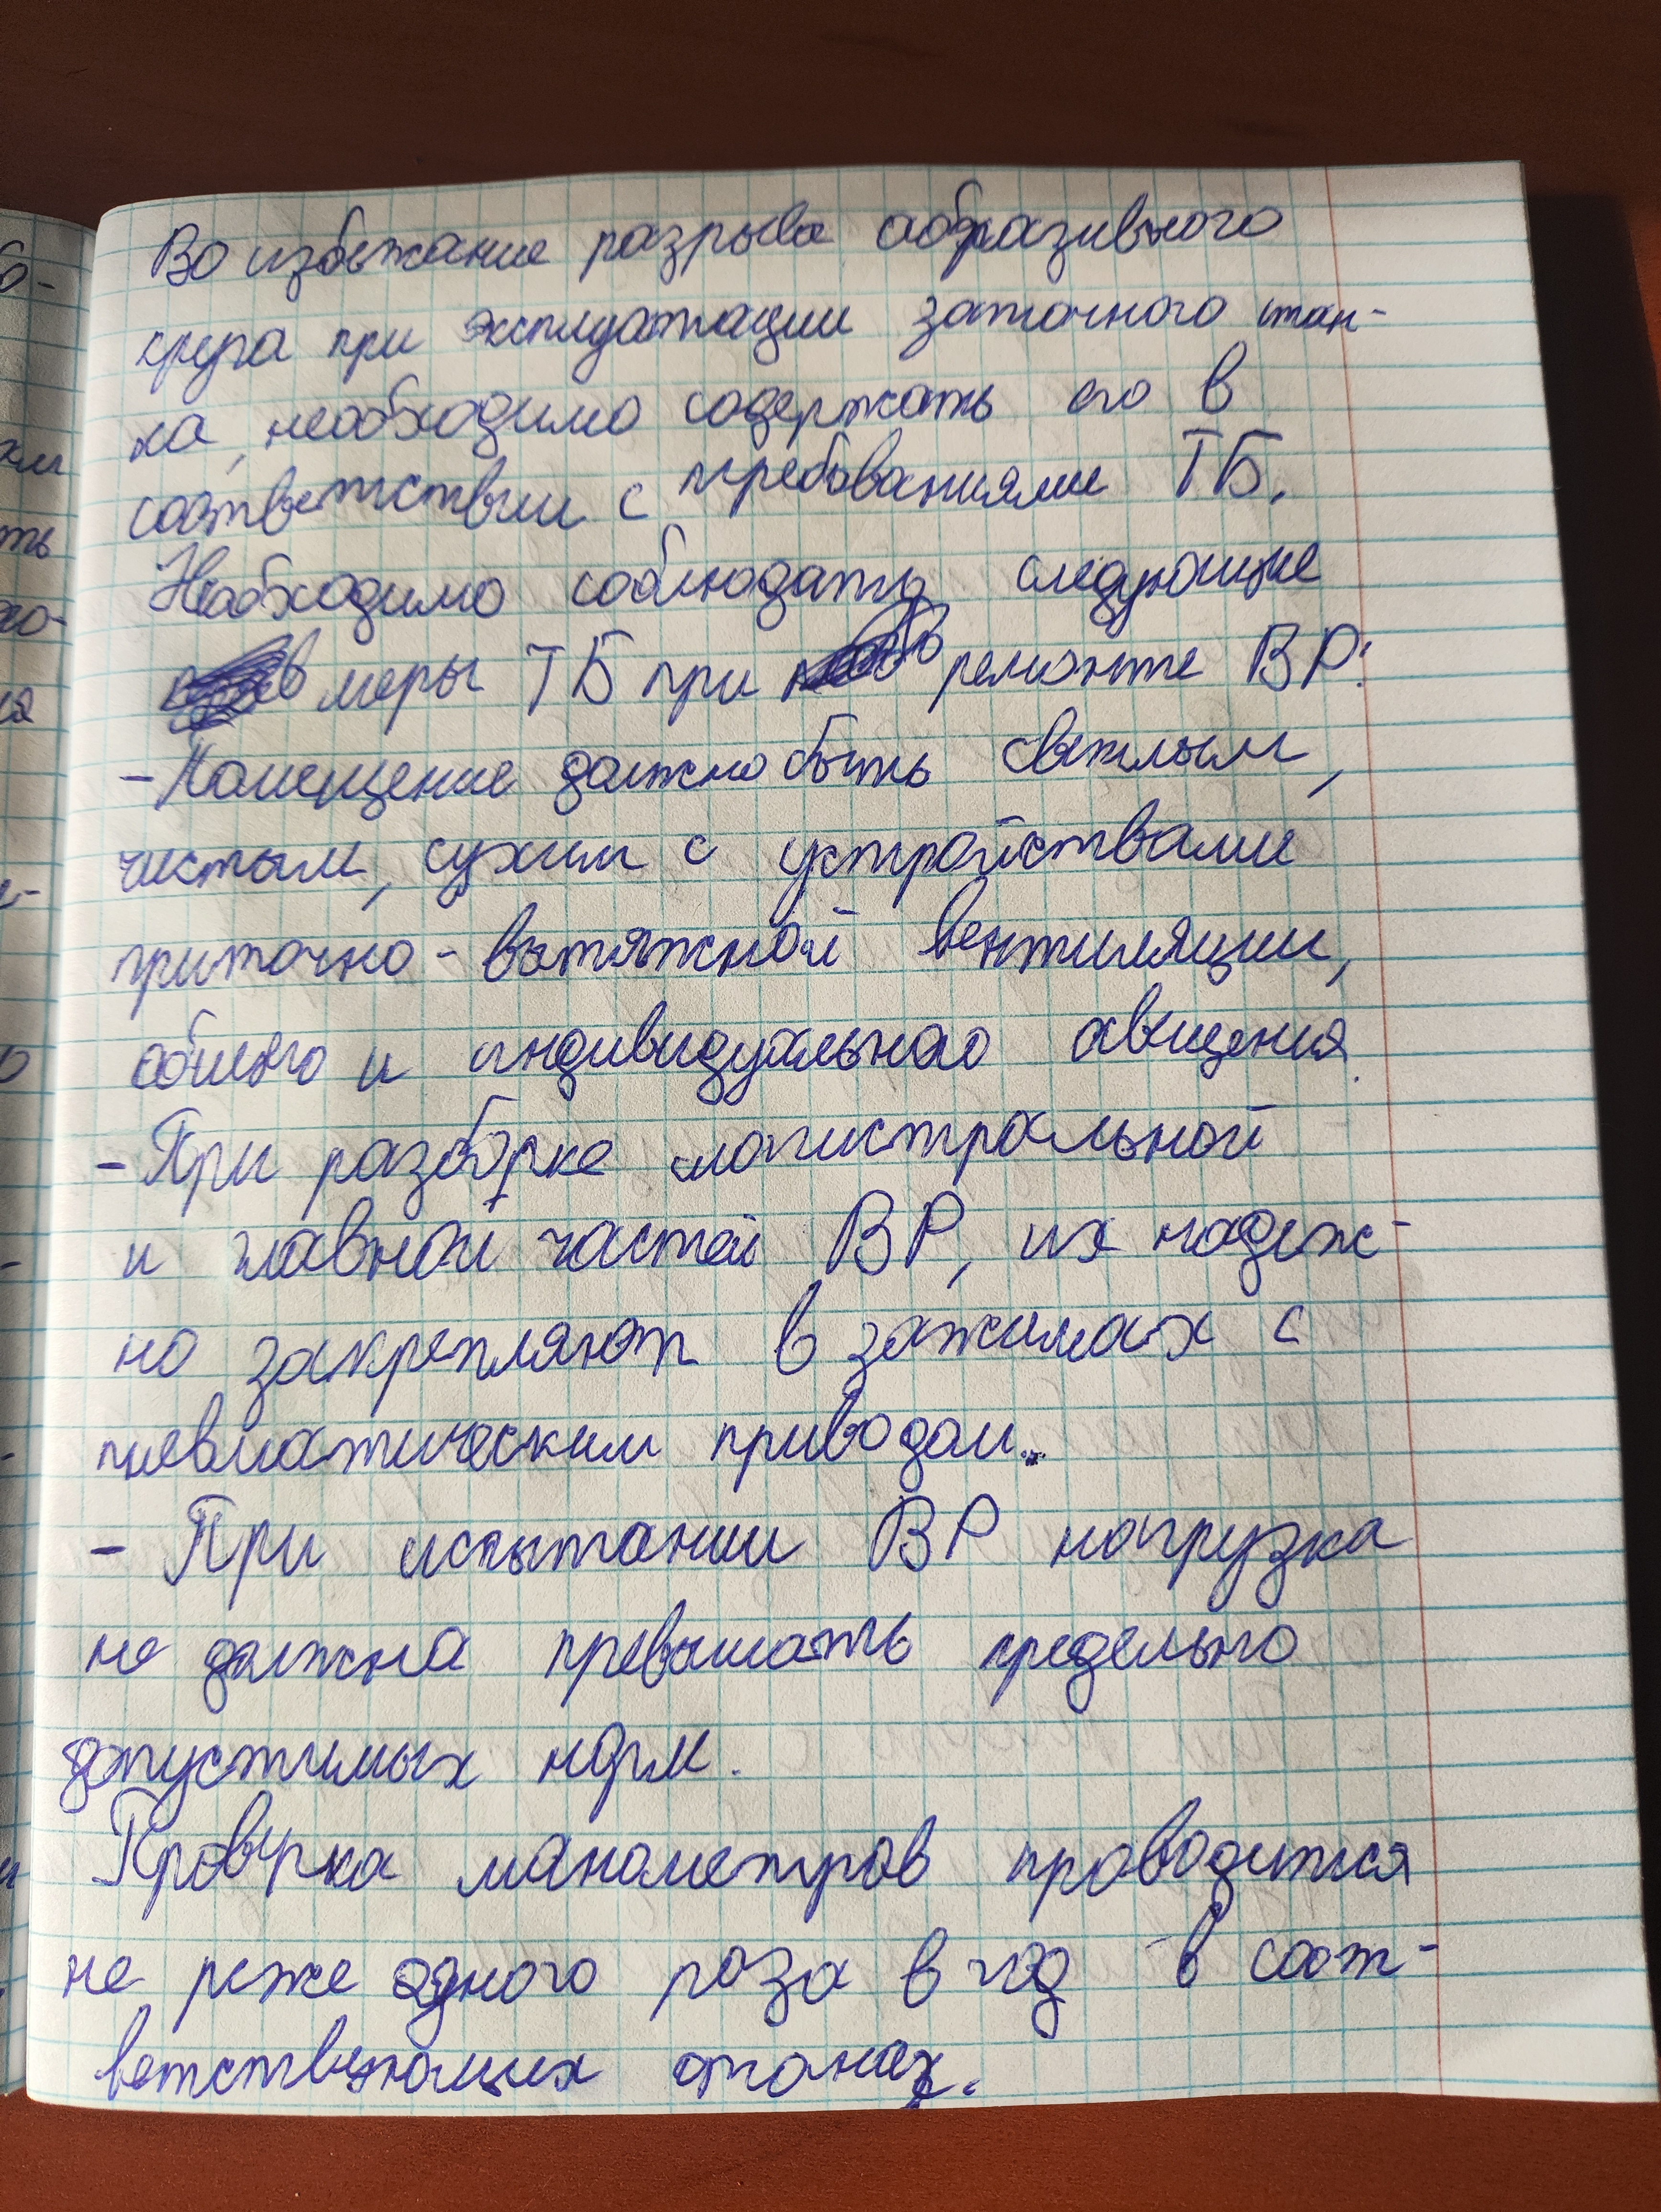 Во избежание разрыва абразивного
круга при эксплуатации заточного стан-
ка, необходимо содержать его в
соответствии с требованиями ТБ.
Необходимо соблюдать следующие
меры ТБ при ремонте ВР:
- Помещение должно быть светлым,
чистым, сухим с устройствами
приточно-вытяжной вентиляции,
общего и индивидуального освещения.
- При разборке магистральной
и главной частей ВР, их надеж-
но закрепляют в зажимах с
пневматическим приводом.
- При испытании ВР нагрузка
не должна превышать предельно
допустимых норм.
Проверка манометров проводится
не реже одного раза в год в соот-
ветствующих органах.